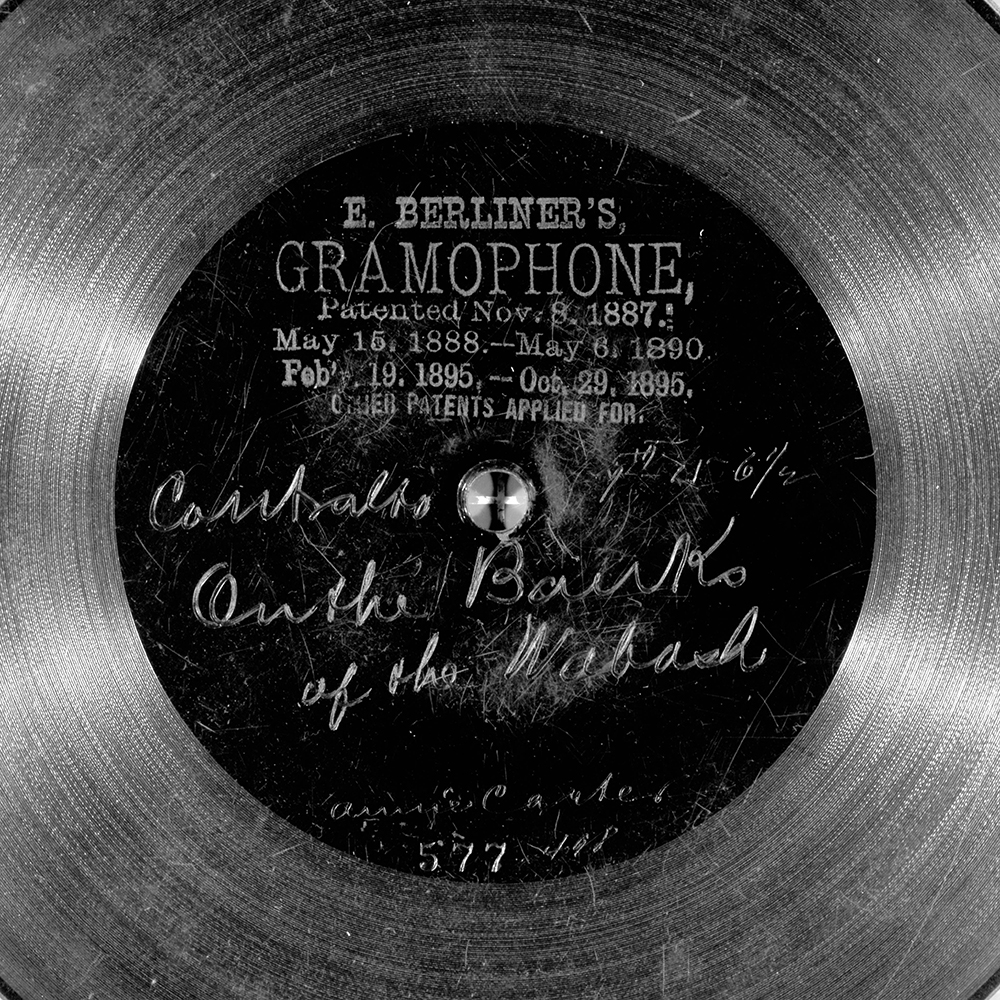 E. BERLINER'S,
GRAMOPHONE,
Patented Nov. 8, 1887.
May 15, 1888.—May 6, 1890.
Feb'y. 19. 1895.—Oct. 29. 1895.
OTHER PATENTS APPLIED FOR.
Contralto
On the Banks
of the Wabash
annie Carter
577